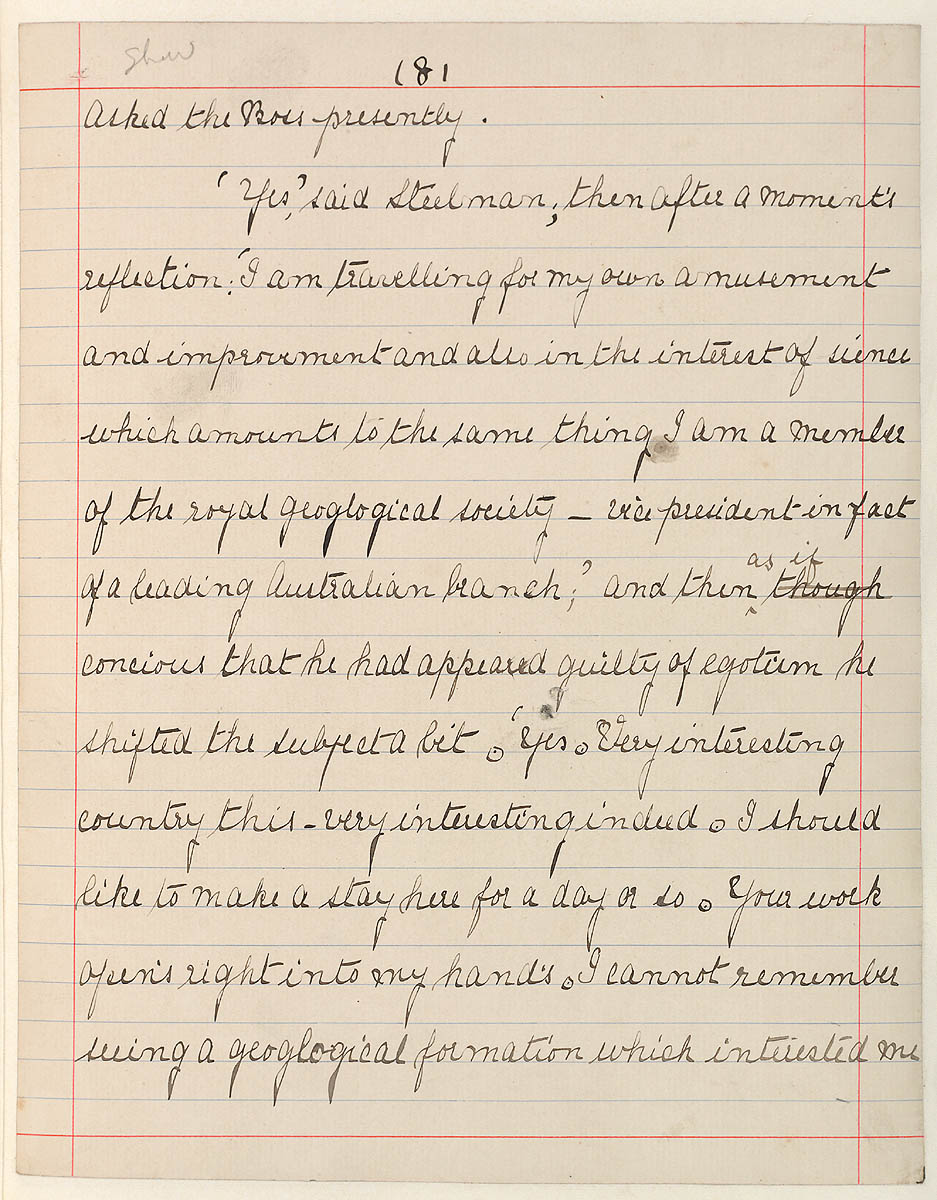 Shaw
181
Asked the Boss presently.
'Yes,' said Steelman; then after a moment's
reflection: 'I am travelling for my own amusement
and improvement and also in the interest of sience
which amounts to the same thing I am a member
of the royal geoglogical society – vice president in fact
of a leading Australian branch;' and then as if though
concious that he had appeared guilty of egotism he
shifted the subject a bit. 'Yes. Very interesting
country this – very interesting indeed. I should
like to make a stay here for a day or so. Your work
open's right into my hand's. I cannot remember
seeing a geoglogical formation which interested me